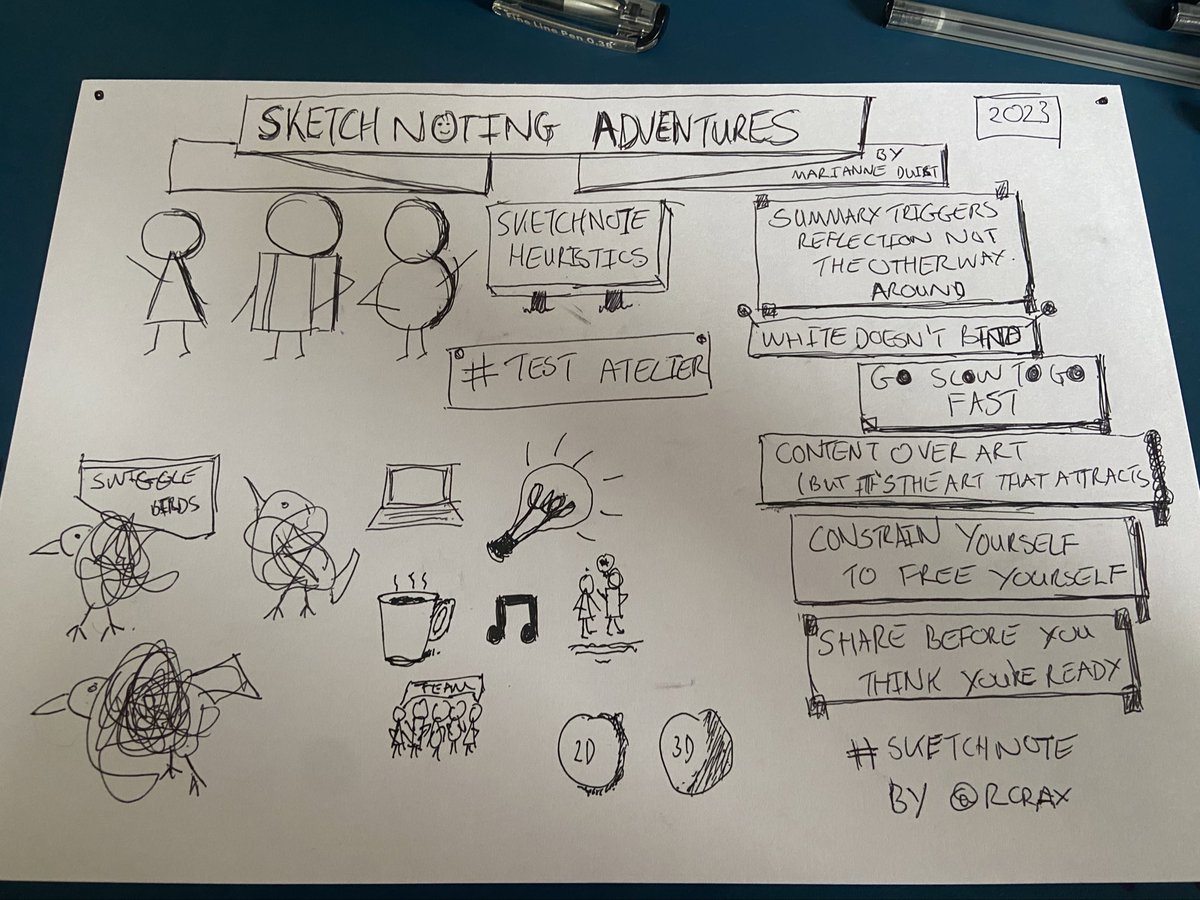 Fine Line Pen 0.38
SKETCH NOTING ADVENTURES
2023
BY
MARIANNE DUIST
SKETCHNOTE
HEURISTICS
# TEST ATELIER
SUMMARY TRIGGERS
REFLECTION NOT
THE OTHER WAY.
AROUND
WHITE DOESN'T BIND
GO SLOW TO GO
FAST
CONTENT OVER ART
(BUT IT'S THE ART THAT ATTRACTS
CONSTRAIN YOURSELF
TO FREE YOURSELF
SHARE BEFORE YOU
THINK YOU'RE READY
SWIGGLE
BIRDS
TEAM
2D
3D
# SKETCHNOTE
BY @RCRAX